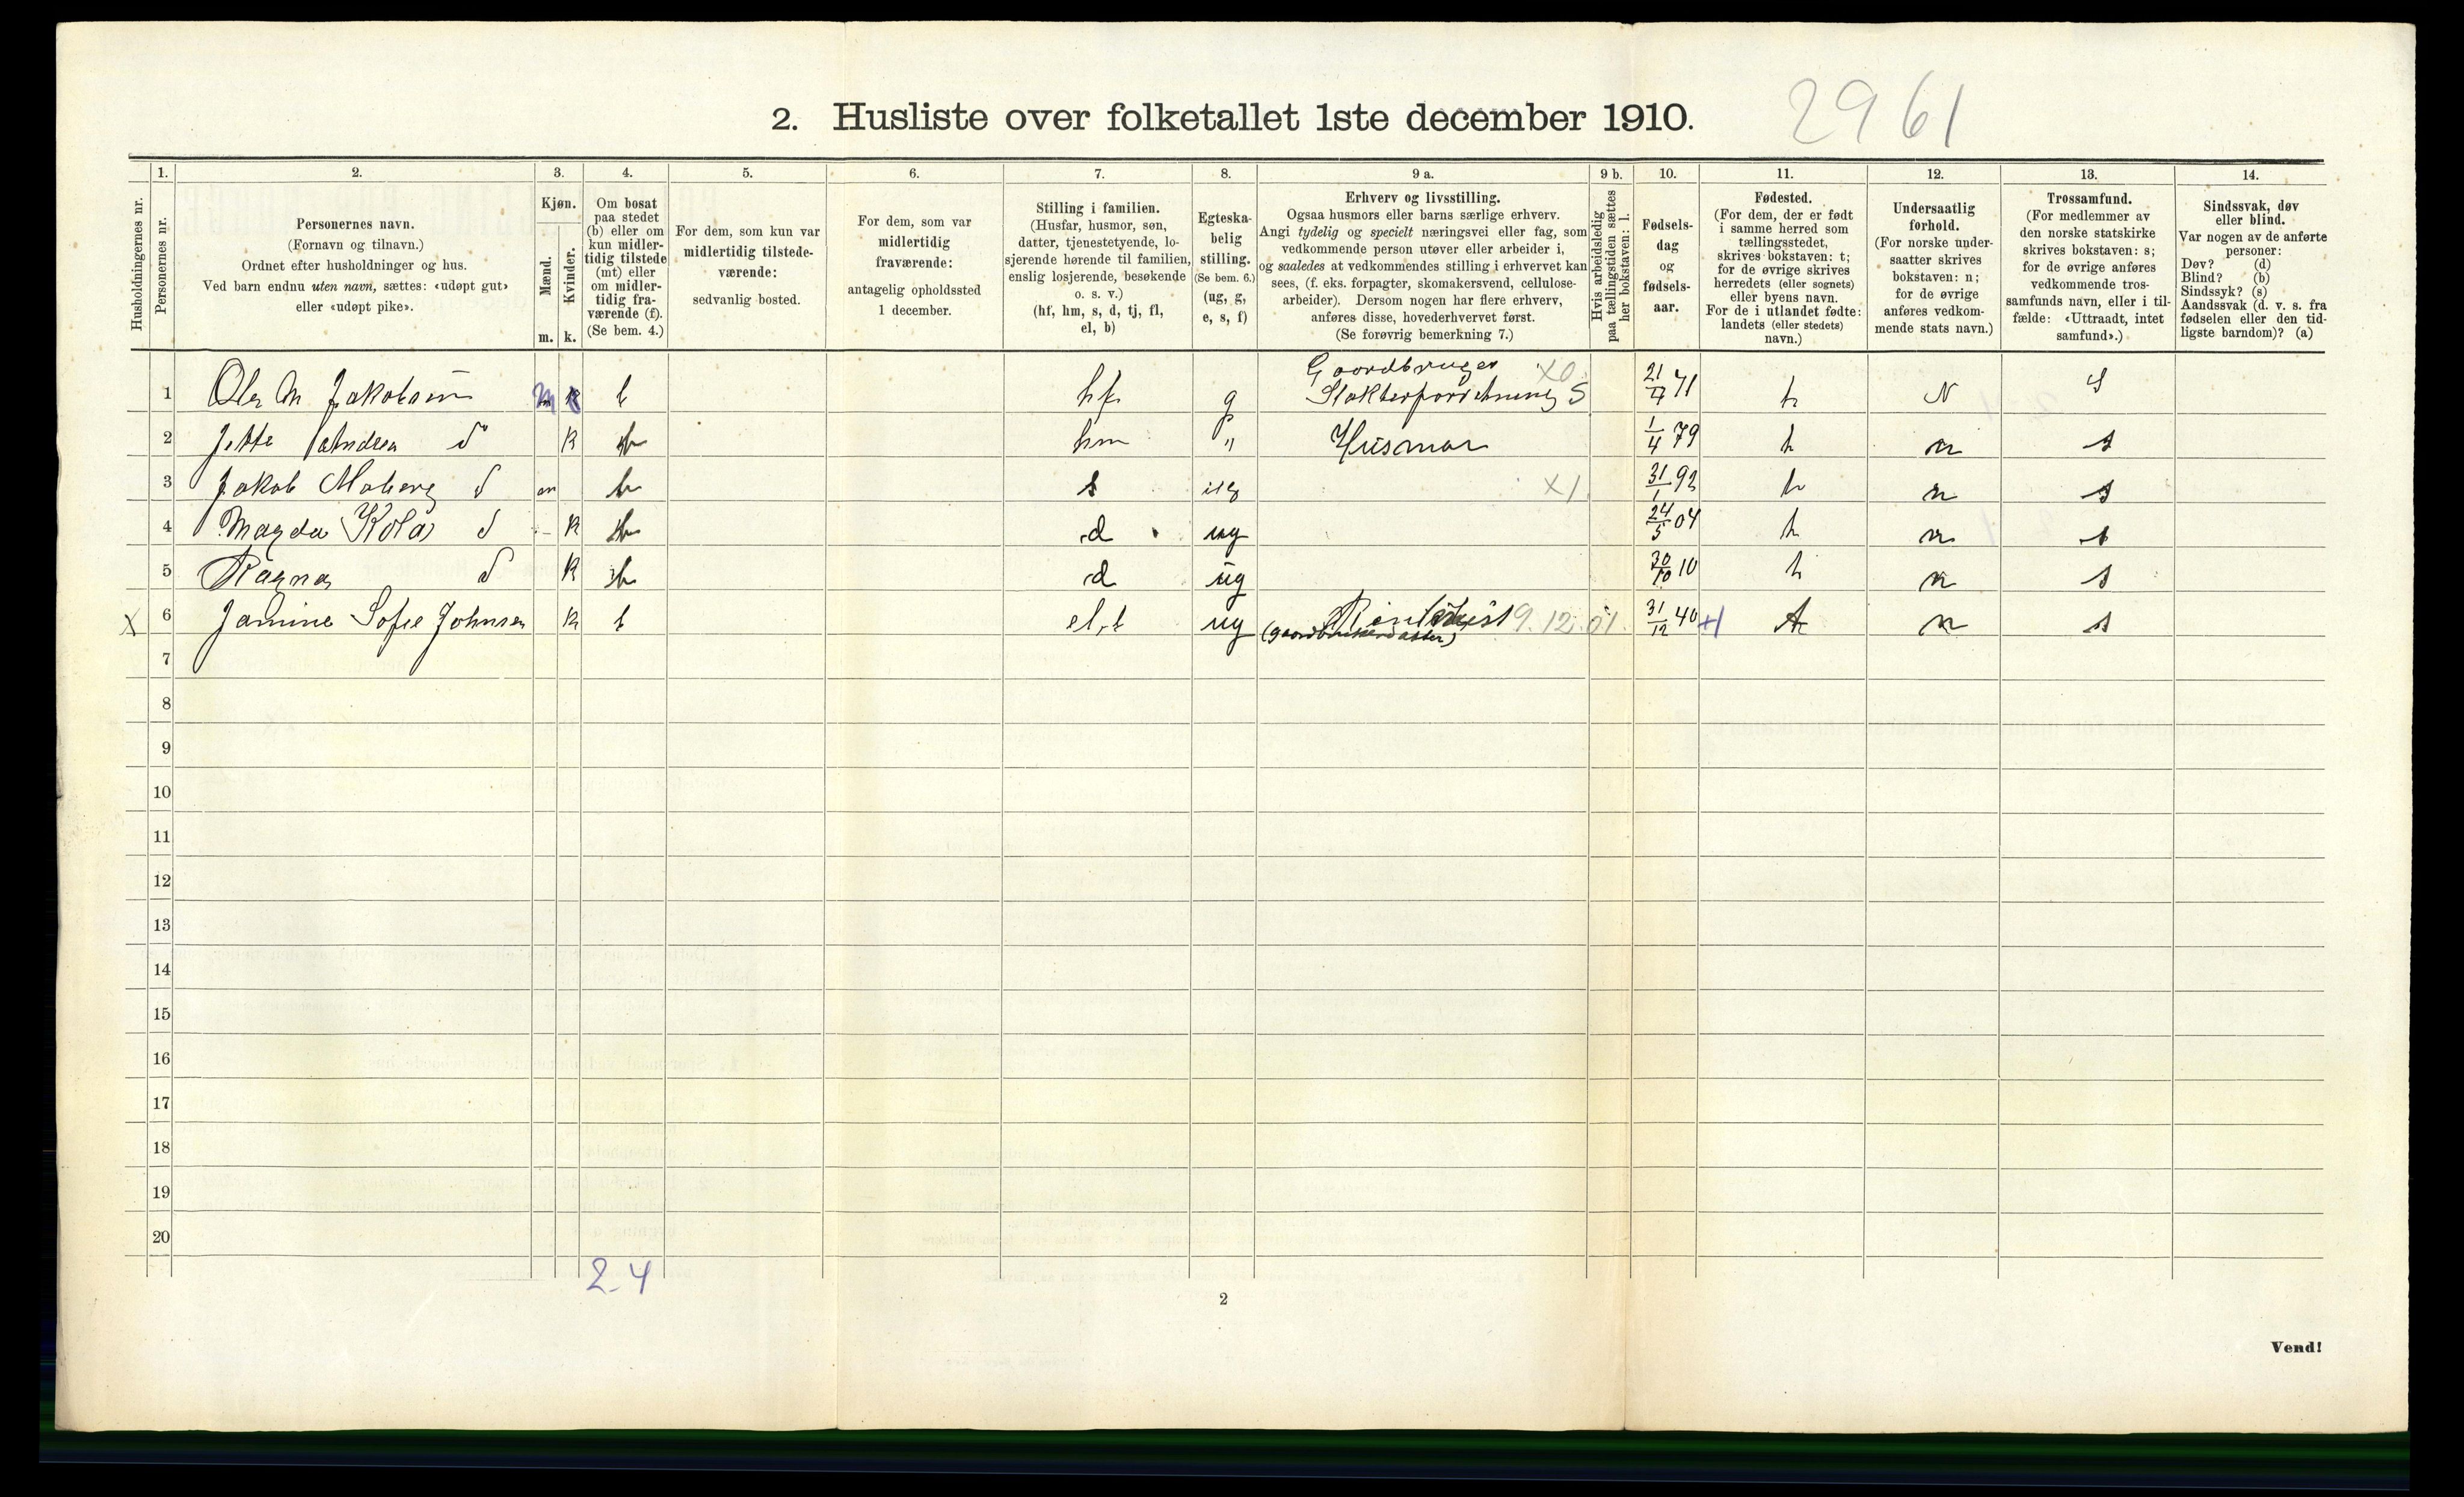 2. Husliste over folketallet 1ste december 1910.
2961
Husholdningernes nr.
1.
Personernes nr.
2.
Personernes navn.
(Fornavn og tilnavn.)
Ordnet efter husholdninger og hus.
Ved barn endnu uten navn, sættes: «udøpt gut»
eller «udøpt pike».
3.
Kjøn.
Mænd.
Kvinder.
m. k.
4.
Om bosat
paa stedet
(b) eller om
kun midler-
tidig tilstede
(mt) eller
om midler-
tidig fra-
værende (f).
(Se bem. 4.)
5.
For dem, som kun var
midlertidig tilstede-
værende:
sedvanlig bosted.
6.
For dem, som var
midlertidig
fraværende:
antagelig opholdssted
1 december.
7.
Stilling i familien.
(Husfar, husmor, søn,
datter, tjenestetyende, lo-
sjerende hørende til familien,
enslig losjerende, besøkende
o. s. v.)
(hf, hm, s, d, tj, fl,
el, b)
8.
Egteska-
belig
stilling.
(Se bem. 6.)
(ug, g,
e, s, f)
9 a.
Erhverv og livsstilling.
Ogsaa husmors eller barns særlige erhverv.
Angi tydelig og specielt næringsvei eller fag, som
vedkommende person utøver eller arbeider i,
og saaledes at vedkommendes stilling i erhvervet kan
sees, (f. eks. forpagter, skomakersvend, cellulose-
arbeider). Dersom nogen har flere erhverv,
anføres disse, hovederhvervet først.
(Se forøvrig bemerkning 7.)
9 b.
Hvis arbeidsledig
paa tællingstiden sættes
her bokstaven: l.
10.
Fødsels-
dag
og
fødsels-
aar.
11.
Fødested.
(For dem, der er født
i samme herred som
tællingsstedet,
skrives bokstaven: t;
for de øvrige skrives
herredets (eller sognets)
eller byens navn.
For de i utlandet fødte:
landets (eller stedets)
navn.)
12.
Undersaatlig
forhold.
(For norske under-
saatter skrives
bokstaven: n;
for de øvrige
anføres vedkom-
mende stats navn.)
13.
Trossamfund.
(For medlemmer av
den norske statskirke
skrives bokstaven: s;
for de øvrige anføres
vedkommende tros-
samfunds navn, eller i til-
fælde: «Uttraadt, intet
samfund».)
14.
Sindssvak, døv
eller blind.
Var nogen av de anførte
personer:
Døv? (d)
Blind? (b)
Sindssyk? (s)
Aandssvak (d. v. s. fra
fødselen eller den tid-
ligste barndom)? (a)
Gaardbruger X0
1 Ole M Jakobsen m k b hf g Slakterforretning S 21/7 71 t N S
2 Jette Andrea d k b hm " Husmor 1/4 79 t n s
3 Jakob Moberg d m b s ug X1 31/1 92 t n s
4 Magda d k b d ug 24/5 04 t n s
5 Ragna d k b d ug 10 t n s
X 6 Jamine Sofie Johnsen k b el, b ug 9.12.01 31/12 40 +1 t n s
7
8
9
10
11
12
13
14
15
16
17
18
19
20
2-4
2
Vend!